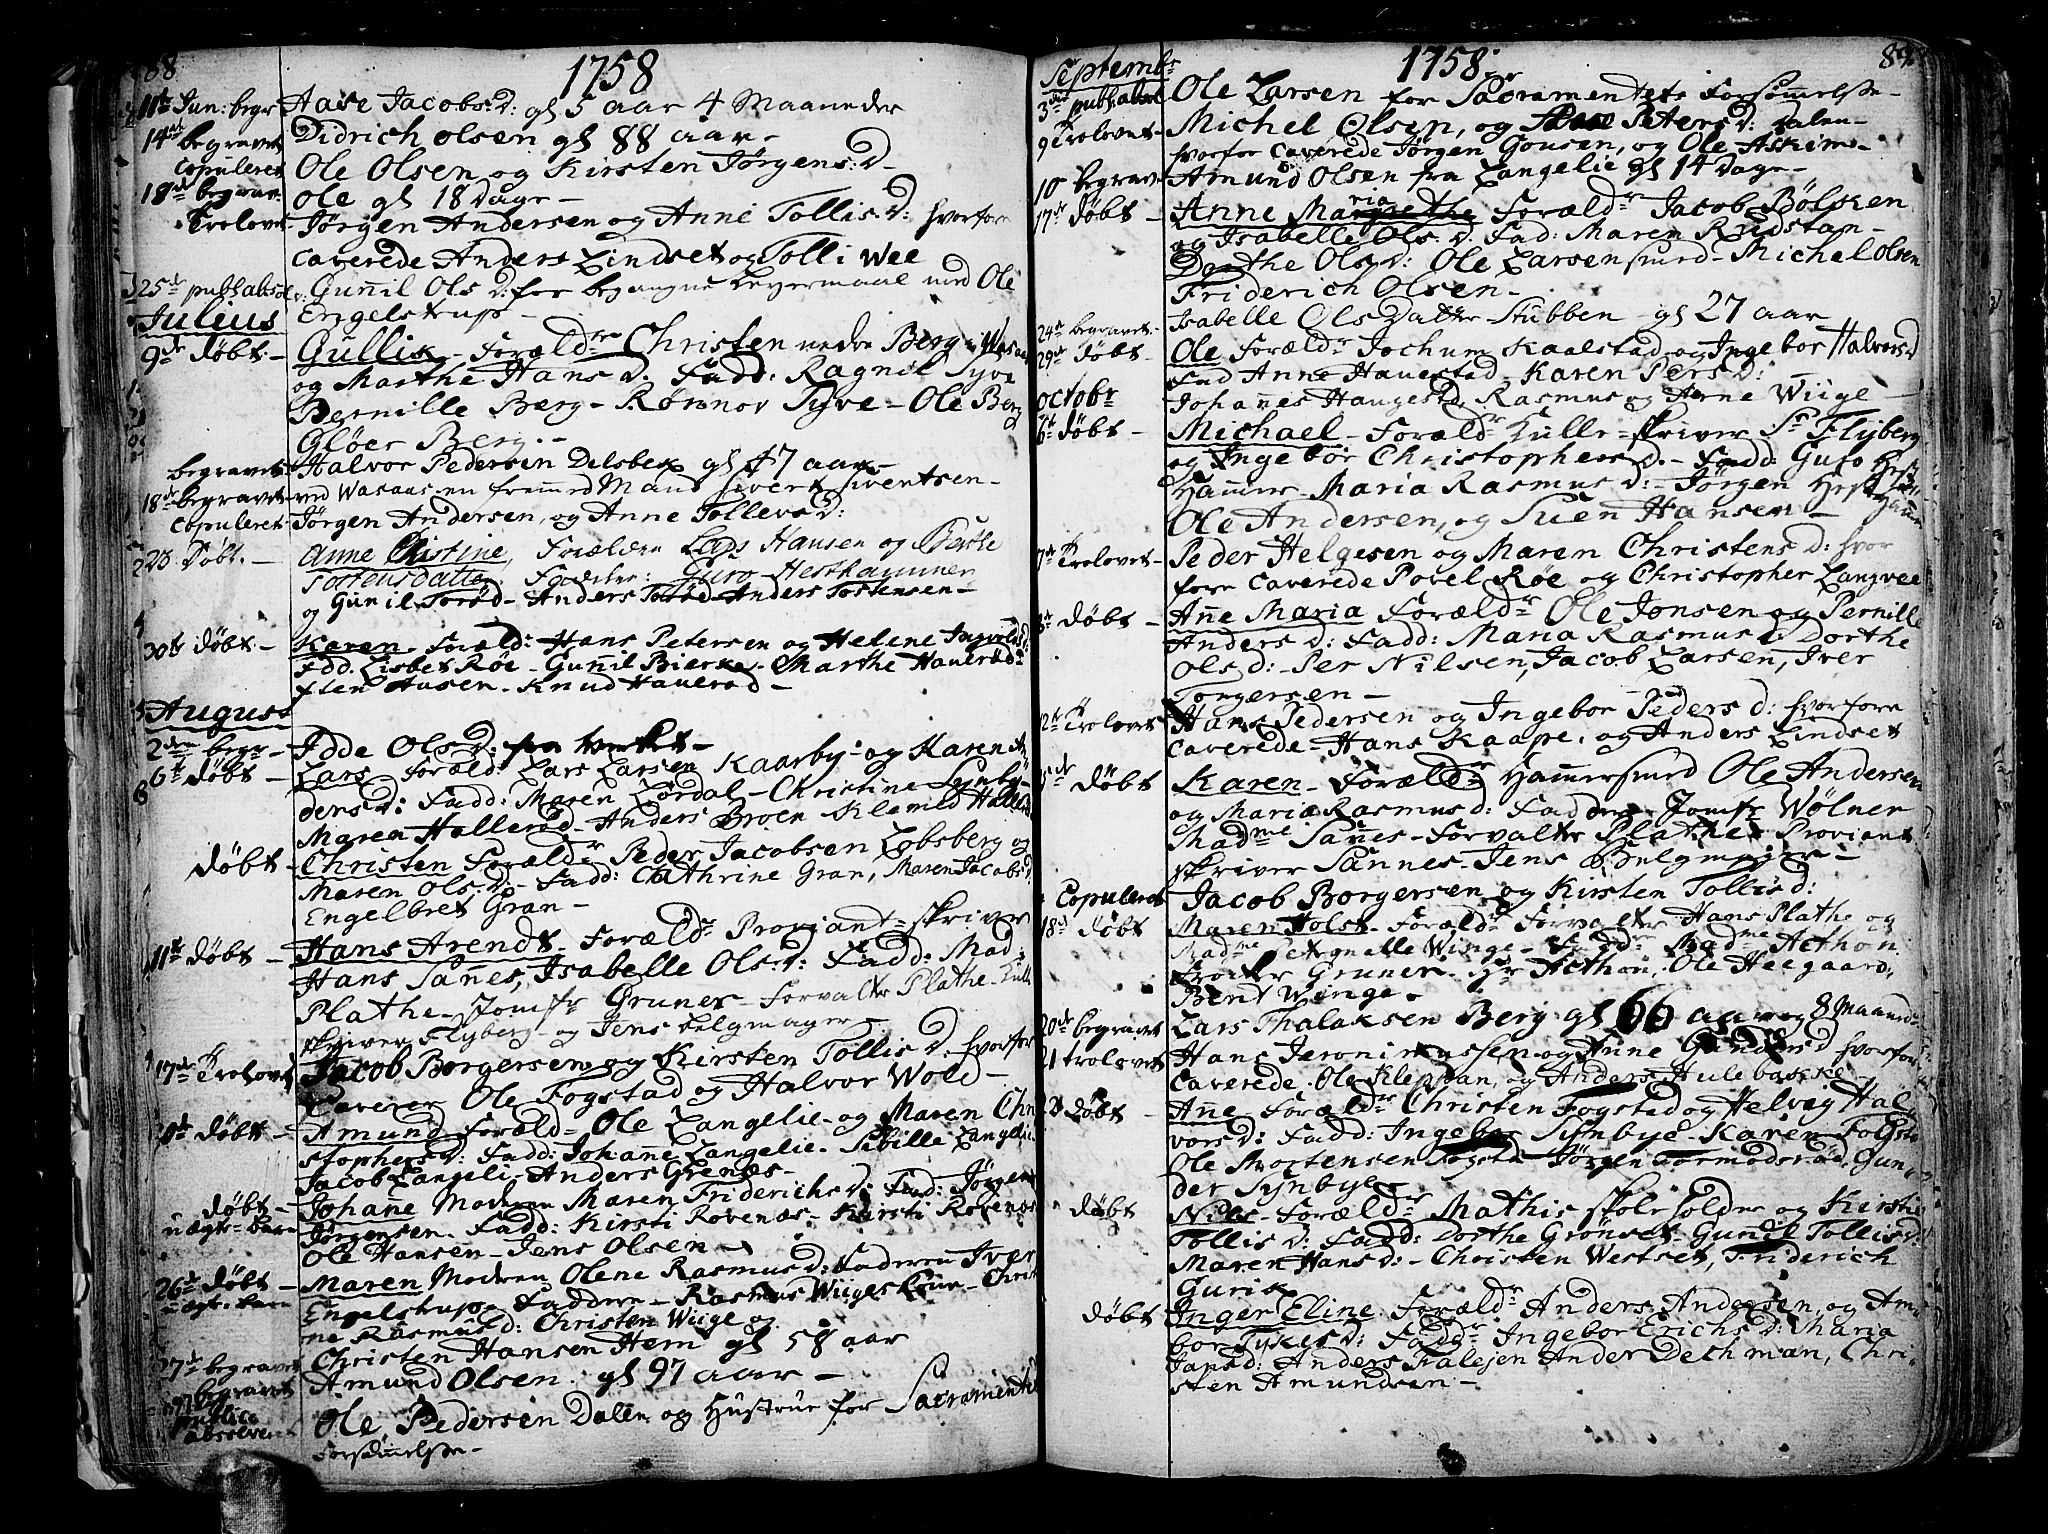 88
1758
11te Jun: begr Aase Jacobs D: gl 5 aar 4 Maaneder
14de begravet Didrich Olsen gl 88 aar-
Copuleret Ole Olsen og Kirsten Jørgens: D-
18de begrav: Ole gl 18 Dage-
Trolovet- Jørgen Andersen og Anne Tollis D: hvorfore
Caverede Anders Lindset og Tolli Wee
25de publ: absol: Gunnil Ols D: for begangne Leyermaal med Ole
Julius Engelstrup-
9de døbt- Gullik- Foræld: Christen nedre Berg
og Marthe Hans D. Fadd: Ragnil Tyve
Bernille Berg- Rønnov Tyve- Ole Berg
Gløer Berg.-
begravet- Halvor Pedersen Delsbek gl 47 aar-
18de begravet- ved Wasaas en fremmed Mand Sivert Siventsen-
Copuleret- Jørgen Andersen, og Anne Tollevs D:
23 Døbt.- Anne Christine, Forælder Lars Hansen og
Tostensdatter, Faddere: Guro Hesthammer
og Gunil Torød- Anders Torød- Anders Tostensen-
30te døbt- Karen- Foræld: Hans Petersen og Helene Ingvolds D:
Fdd: Lisbet Røe- Gunil Bierke- Marthe Hauerød
Hansen- Knud Hauerød-
August
2den begr- Ols D: fra Verket-
6te døbt- Lars- Foræld: Lars Larsen Kaarby- og Karen An
ders D: Fadd: Maren Lørdal- Christine Synby-
Maren Hallerød- Anders Broen Klemed Hallerød
døbt- Christen Foræld: Peder Jacobsen Løbsberg og
Maren Ols: D- Fadd: Cathrine Gran, Maren Jacobs D:
Engelbret Gran-
11te døbt- Hans Arendt- Foræld: Proviant=skriver
Hans Sannes, Isabelle Ols: D: Fadd: Mad:
Plathe- Jomfr Gruner- Forvalter Plathe- Kull
skriver Flyberg- og Jens Helgmager-
17de Trolovet Jacob Borgersen og Kirsten Tollis D. hvorfor
Caverer Ole Fogstad og Halvor Wold-
20de døbt- Amund Foræld- Ole Langelie- og Maren Chri
stophers D: Fadd: Johanne Langelie- Sibille Langelie
Jacob Langeli- Anders Grenæs-
døbt- Johanne Moderen Maren Friderichs D: Fad: Jørgen
uægte= barn Jørgensen. Fadd: Kirsti Rovenæs- Kirsti Rovenæs
Ole Hansen- Jens Olsen-
26de døbt- Maren Moderen Olene Rasmus D: Faderen Iver
uægte= barn Engelstrup- Faddere- Rasmus Wiiges Kone- Christi
ne Rasmus D: Christen Wiige og
27de begravet Christen Hansen Hem gl 58 aar
begravet Amund Olsen. gl 97 aar-
publice absolveret Ole Pedersen Dalen og Hustrue for Sacramentets
Forsømmelse-
89
Septembr 1758
3de publ: absol Ole Larsen for Sacramentets Forsømmelse-
9 Trolovet- Michel Olsen, og Peters D: Dalen-
hvorfor Caverede Jørgen Gousen, og Ole Askim-
10 begravet Amund Olsen fra Langelie gl 14 Dage-
17de døbt- Anne Maria Foræld: Jacob Bølsken
og Isabelle Ols: D. Fad: Maren Rustan-
Dorthe Ols D: Ole Larsen smed- Michel Olsen
Friderich Olsen-
24de begravet- Isabelle OlsDatter Stubben- gl 27 aar
29de døbt- Ole Foræld: Jochum Kaalstad og Ingebor Halvors D
Fad Anne Hauestad- Karen Pers D:
Octobr Johannes Haugestd Rasmus og Arne Wiige-
6te døbt- Michael- Foræld: Kulle=skriver Sr Flyberg
og Ingebor Christophers D.- Fadd: Guro Hest
Hammer- Maria Rasmus D:- Jørgen Hest Hamr
Ole Andersen, og Suen Hansen-
7de Trolovet- Peder Helgesen og Maren Christens D: hvor
fore Caverede Povel Røe og Christopher Langvee
8de døbt- Anne Maria Foræld: Ole Jonsen og Pernille
Anders D: Fadd: Maria Rasmus D Dorthe
Ols D: Per Nilsen, Jacob Larsen, Iver
Torgersen-
12te Trolovet Hans Pedersen og Ingebor Peders D: hvorfore
Caverede- Hans Kaape, og Anders Lindset
døbt Karen- Foræld: Hammersmed Ole Andersen
og Maria Rasmus D: Faddere Jomfr Wølner
Madme Sannes- Forvalter Plathe- Proviant
skriver Sannes- Jens Helgmager-
Copuleret Jacob Borgersen og Kirsten Tollis D:
18de døbt Maren Holst- Foræld: Forvalter Hans Plathe og
Madme Petronelle Winge- Fadd: Madme Acthon
Gruner- Hr Acthon, Ole Heegaard:
Bent Winge.
20de begravet Lars Thalaksen Berg gl 66 aar og 8 Maand
21 trolovet Hans Jeronimussen og Anne Gunders D hvorfor
Caverede. Ole Kleppan, og Anders Hulebakke-
28 døbt- Anne- Foræld: Christen Fogstad og Helvig Hal
vors D: Fadd: Ingebor Synbye- Karen Fogsta
Ole Mortensen Fogsta- Jørgen Tormodsrød, Gun
der Synbye-
døbt Nils- Foræld: Mathis skoleholder og Kirsti
Tollis D: Fadd: Dorthe Grønset- Gunil Tollis D:
Maren Hans D:- Christen Westset, Friderich
Gurik
døbt Inger Eline. Foræld: Anders Andersen, og Am
bor Tykes D: Fadd: Ingebor Erichs D: Maria
Jans D: Anders Falejen Ander Dechman, Chri-
sten Amundsen-